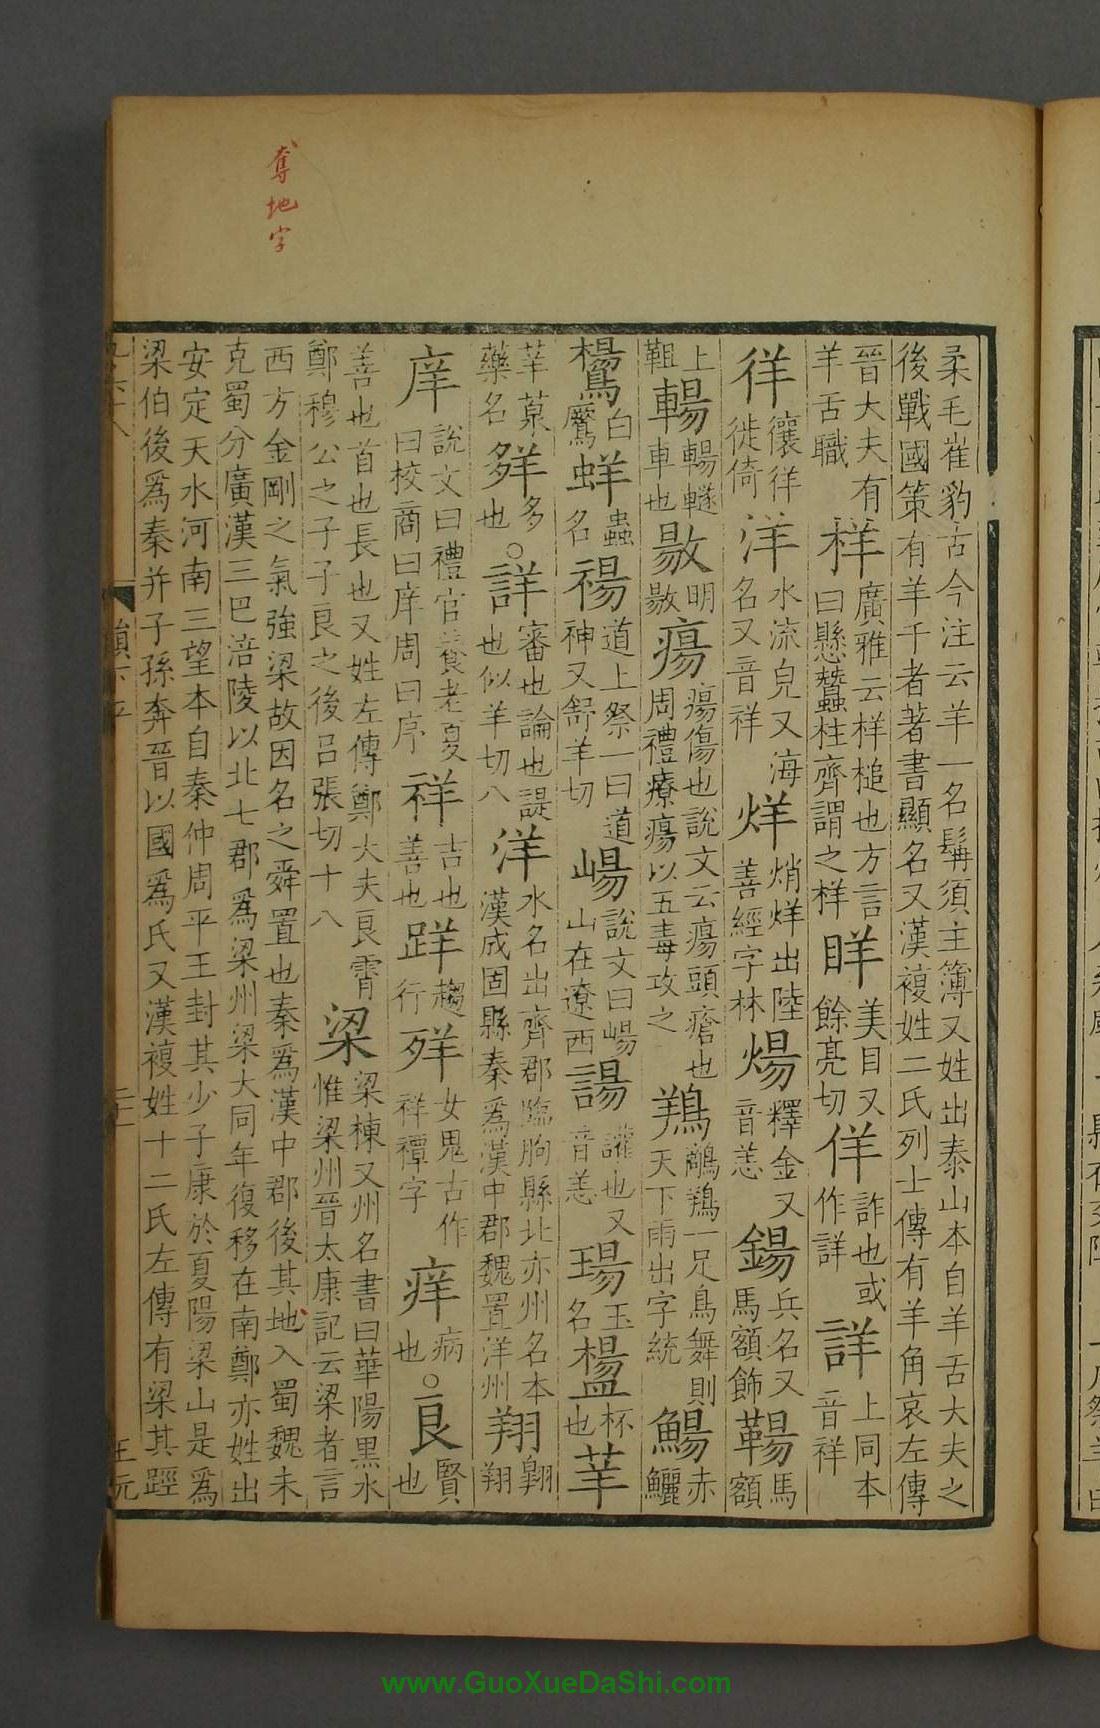 奪地字
柔毛崔豹古今注云羊一名髯須主簿又姓出泰山本自羊舌大夫之
後戰國策有羊千者著書顯名又漢複姓二氏列士傳有羊角哀左傳
晉大夫有羊舌職 样廣雅云样槌也方言曰懸蠶柱齊謂之样 眻美目又餘亮切 佯詐也或作詳 詳上同本音祥
徉儴徉徙倚 洋水流皃又海名又音祥 烊焇烊出陸善經字林 煬釋金又音恙 鍚兵名又馬額飾 䩶馬額
上靻 輰輰䡵車也 敭明敭 瘍瘍傷也說文云瘍頭瘡也周禮療瘍以五毒攻之 鸉鷛鸉一足鳥舞則天下雨出字統 鰑赤鱺
鸉白鷢 蛘蟲名 禓道上祭一曰道神又舒羊切 崵說文曰崵山在遼西 諹讙也又音恙 瑒玉名 㼒杯也 䒋
䒋菒藥名 𡖶多也○詳審也論也諟也似羊切八 洋水名出齊郡臨朐縣北亦州名本漢成固縣秦爲漢中郡魏置洋州 翔翺翔
庠說文曰禮官養老夏曰校商曰庠周曰序 祥吉也善也 跘趨行 歽女鬼古作祥禫字 痒病也○良賢也
善也首也長也又姓左傳鄭大夫良霄鄭穆公之子子良之後呂張切十八 梁梁棟又州名書曰華陽黑水惟梁州晉太康記云梁者言
西方金剛之氣強梁故因名之舜置也秦爲漢中郡後其地入蜀魏未
克蜀分廣漢三巴涪陵以北七郡爲梁州梁大同年復移在南鄭亦姓出
安定天水河南三望本自秦仲周平王封其少子康於夏陽梁山是爲
梁伯後爲秦并子孫奔晉以國爲氏又漢複姓十二氏左傳有梁其踁
二十一
王元
www.GuoXueDaShi.com